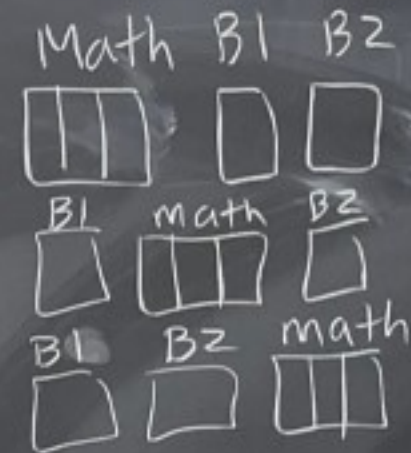 Math B1 B2
B1 math B2
B1 B2 math